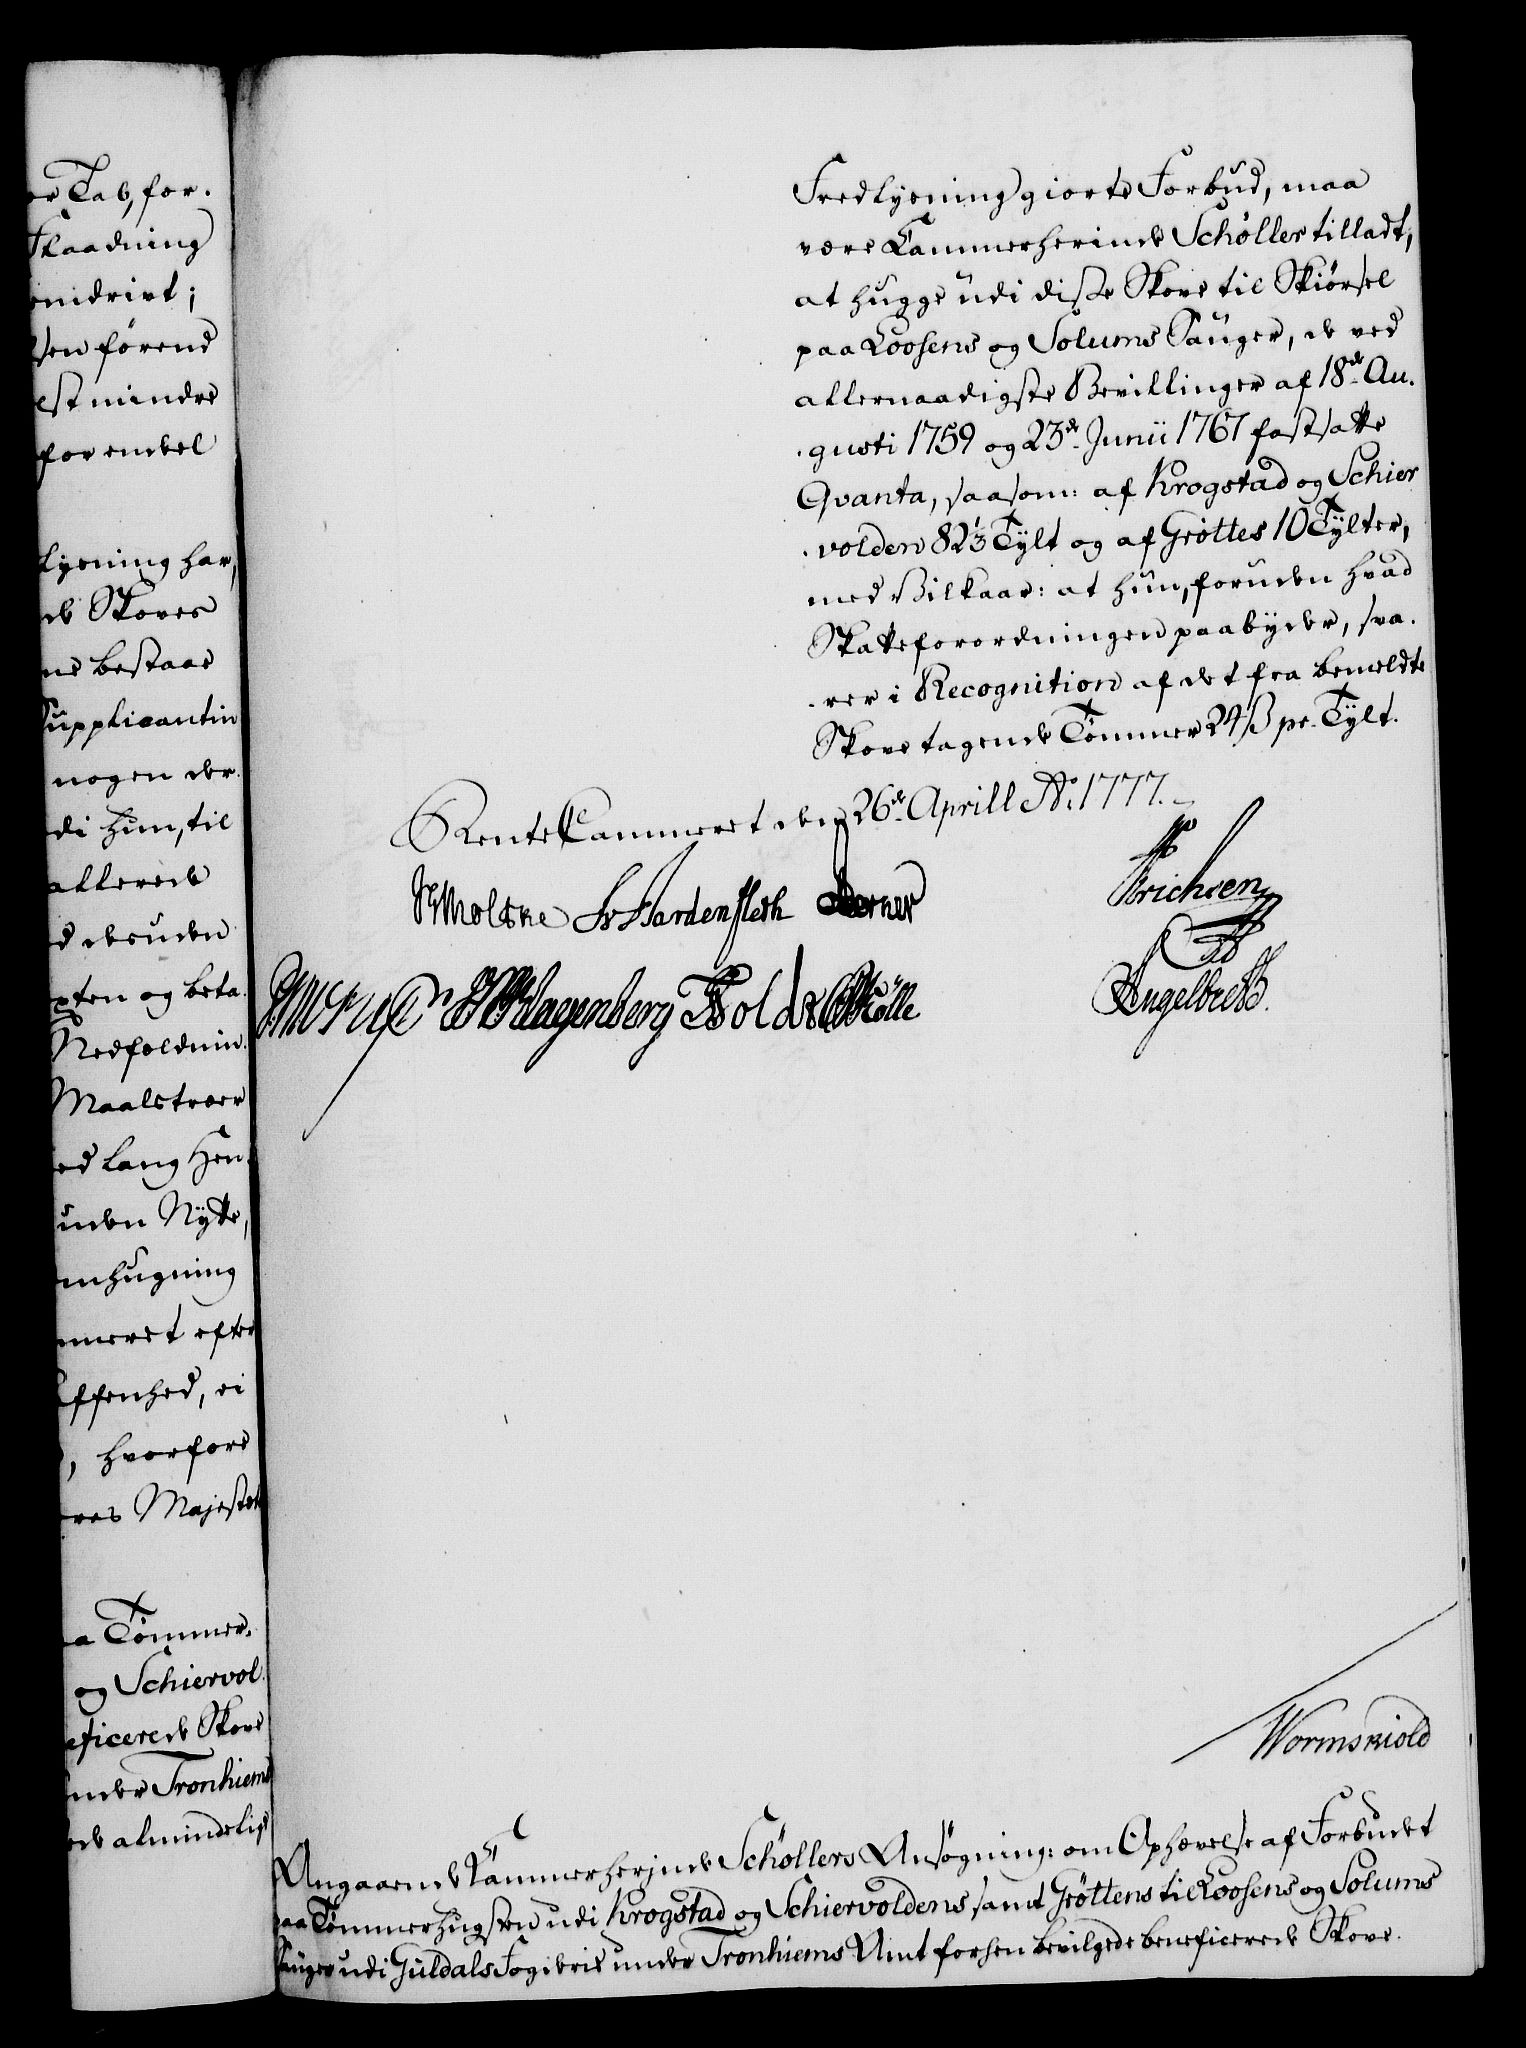 or Tab, for.
Flaadning
endrivt;
sen førend
est mindre
for endeel
Lysning har,
de Skoves
ne bestaae
Supplicantin
nogen der.
di hun, til
allerede
d desuden
pten og beta.
Nedfældnin.
Maalstræer
ed lang Hen.
uden Nytte,
mhugning
meret efter
affenhed, ei
, hvorfore
eres Majestet
a Tømmer.
og Schiervol.
eficerede Skove
under Tronhiems
ede almindelige
Fredlysning giorte Forbud, maa
være Cammerherinde Schøller tilladt,
at hugge udi disse Skove til Skiørsel
paa Loosens og Solums Sauger, de ved
allernaadigste Bevillinger af 18de Au.
gusti 1759 og 23de Junii 1767 fastsatte
Qvanta, saasom: af Krogstad og Schier
volden 82 1/3 Tylt og af Grøttes 10 Tylter,
med Vilkaar: at hun, foruden hvad
Skatteforordningen paabyder, sva.
rer i Recognition af det fra bemeldte
Skove tagende Tømmer 24 ß pr. Tylt.
RenteCammeret den 26de Aprill Ao. 1777.
HMoltke Hardenfleth Berner Erichsen
Klagenberg Holdt Mølle Engelbreth
Wormskiold
Angaaende Kammerherinde Schøllers Ansøgning: om Ophævelse af Forbudet
paa Tømmerhugsten udi Krogstad og Schiervoldens samt Grøttens til Loosens og Solums
Sauger udi Guldals Fogderie under Tronhiems Amt forhen bevilgede beneficerede Skove.